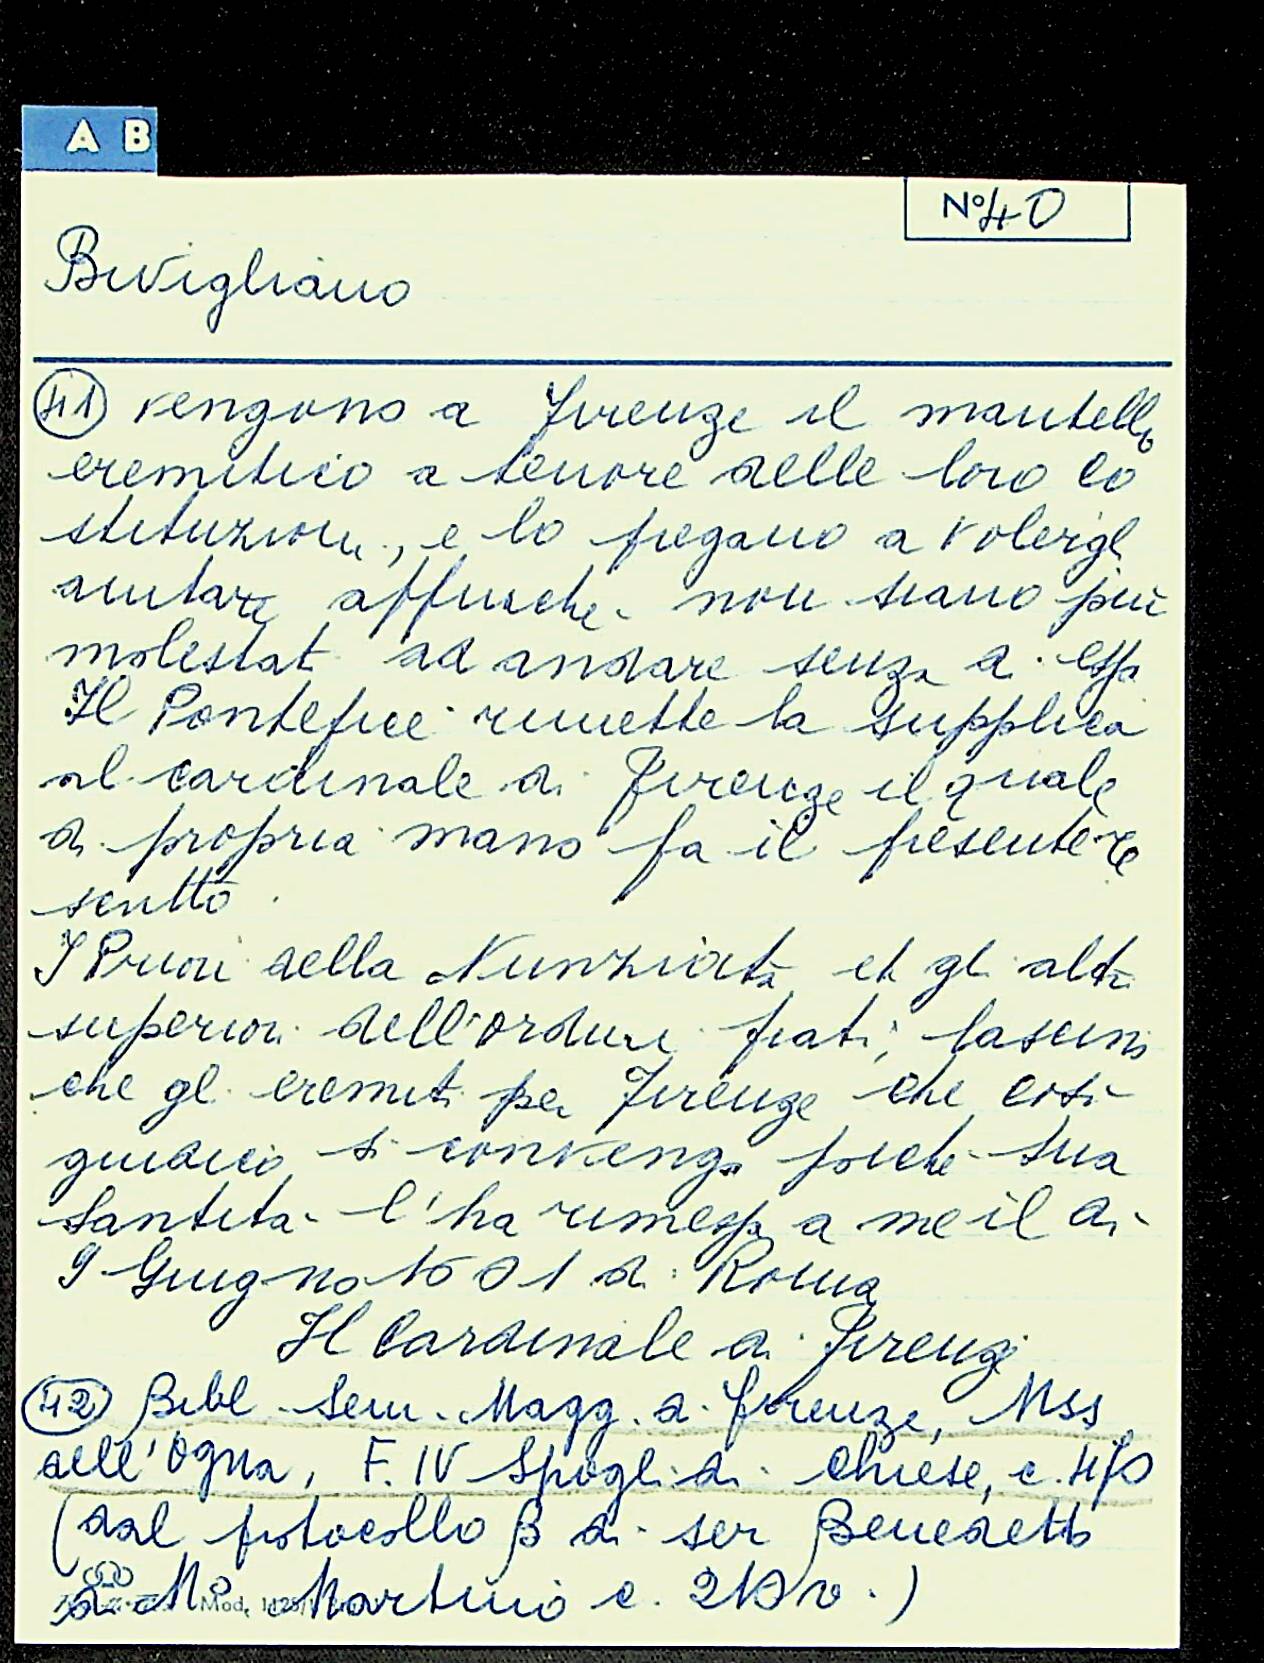 A B
N° 40
Bivigliano
41 vengono a Firenze il mantello
eremitico a tenore delle loro co
stituzioni, e lo pregano a volergli
aiutare affinche non siano più
molestati ad andare senza di esso
Il Pontefice rimette la supplica
al cardinale di Firenze il quale
di propria mano fa il presente re
scritto.
I Priori della Nunziata et gli altri
superiori dell'ordine frati, lascino
che gli eremiti per Firenze che così
giudico si convenga poiche Sua
Santita l'ha rimessa a me il di
9 Giugno 1601 di Roma
Il Cardinale di Firenze
42 Bibl. Sem. Magg. di Firenze, Mss
dell'Ogna, F. IV Spogli di Chiese, c. 470
(dal protocollo β di ser Benedetto
di M° Martino c. 210 v.)
Mod.